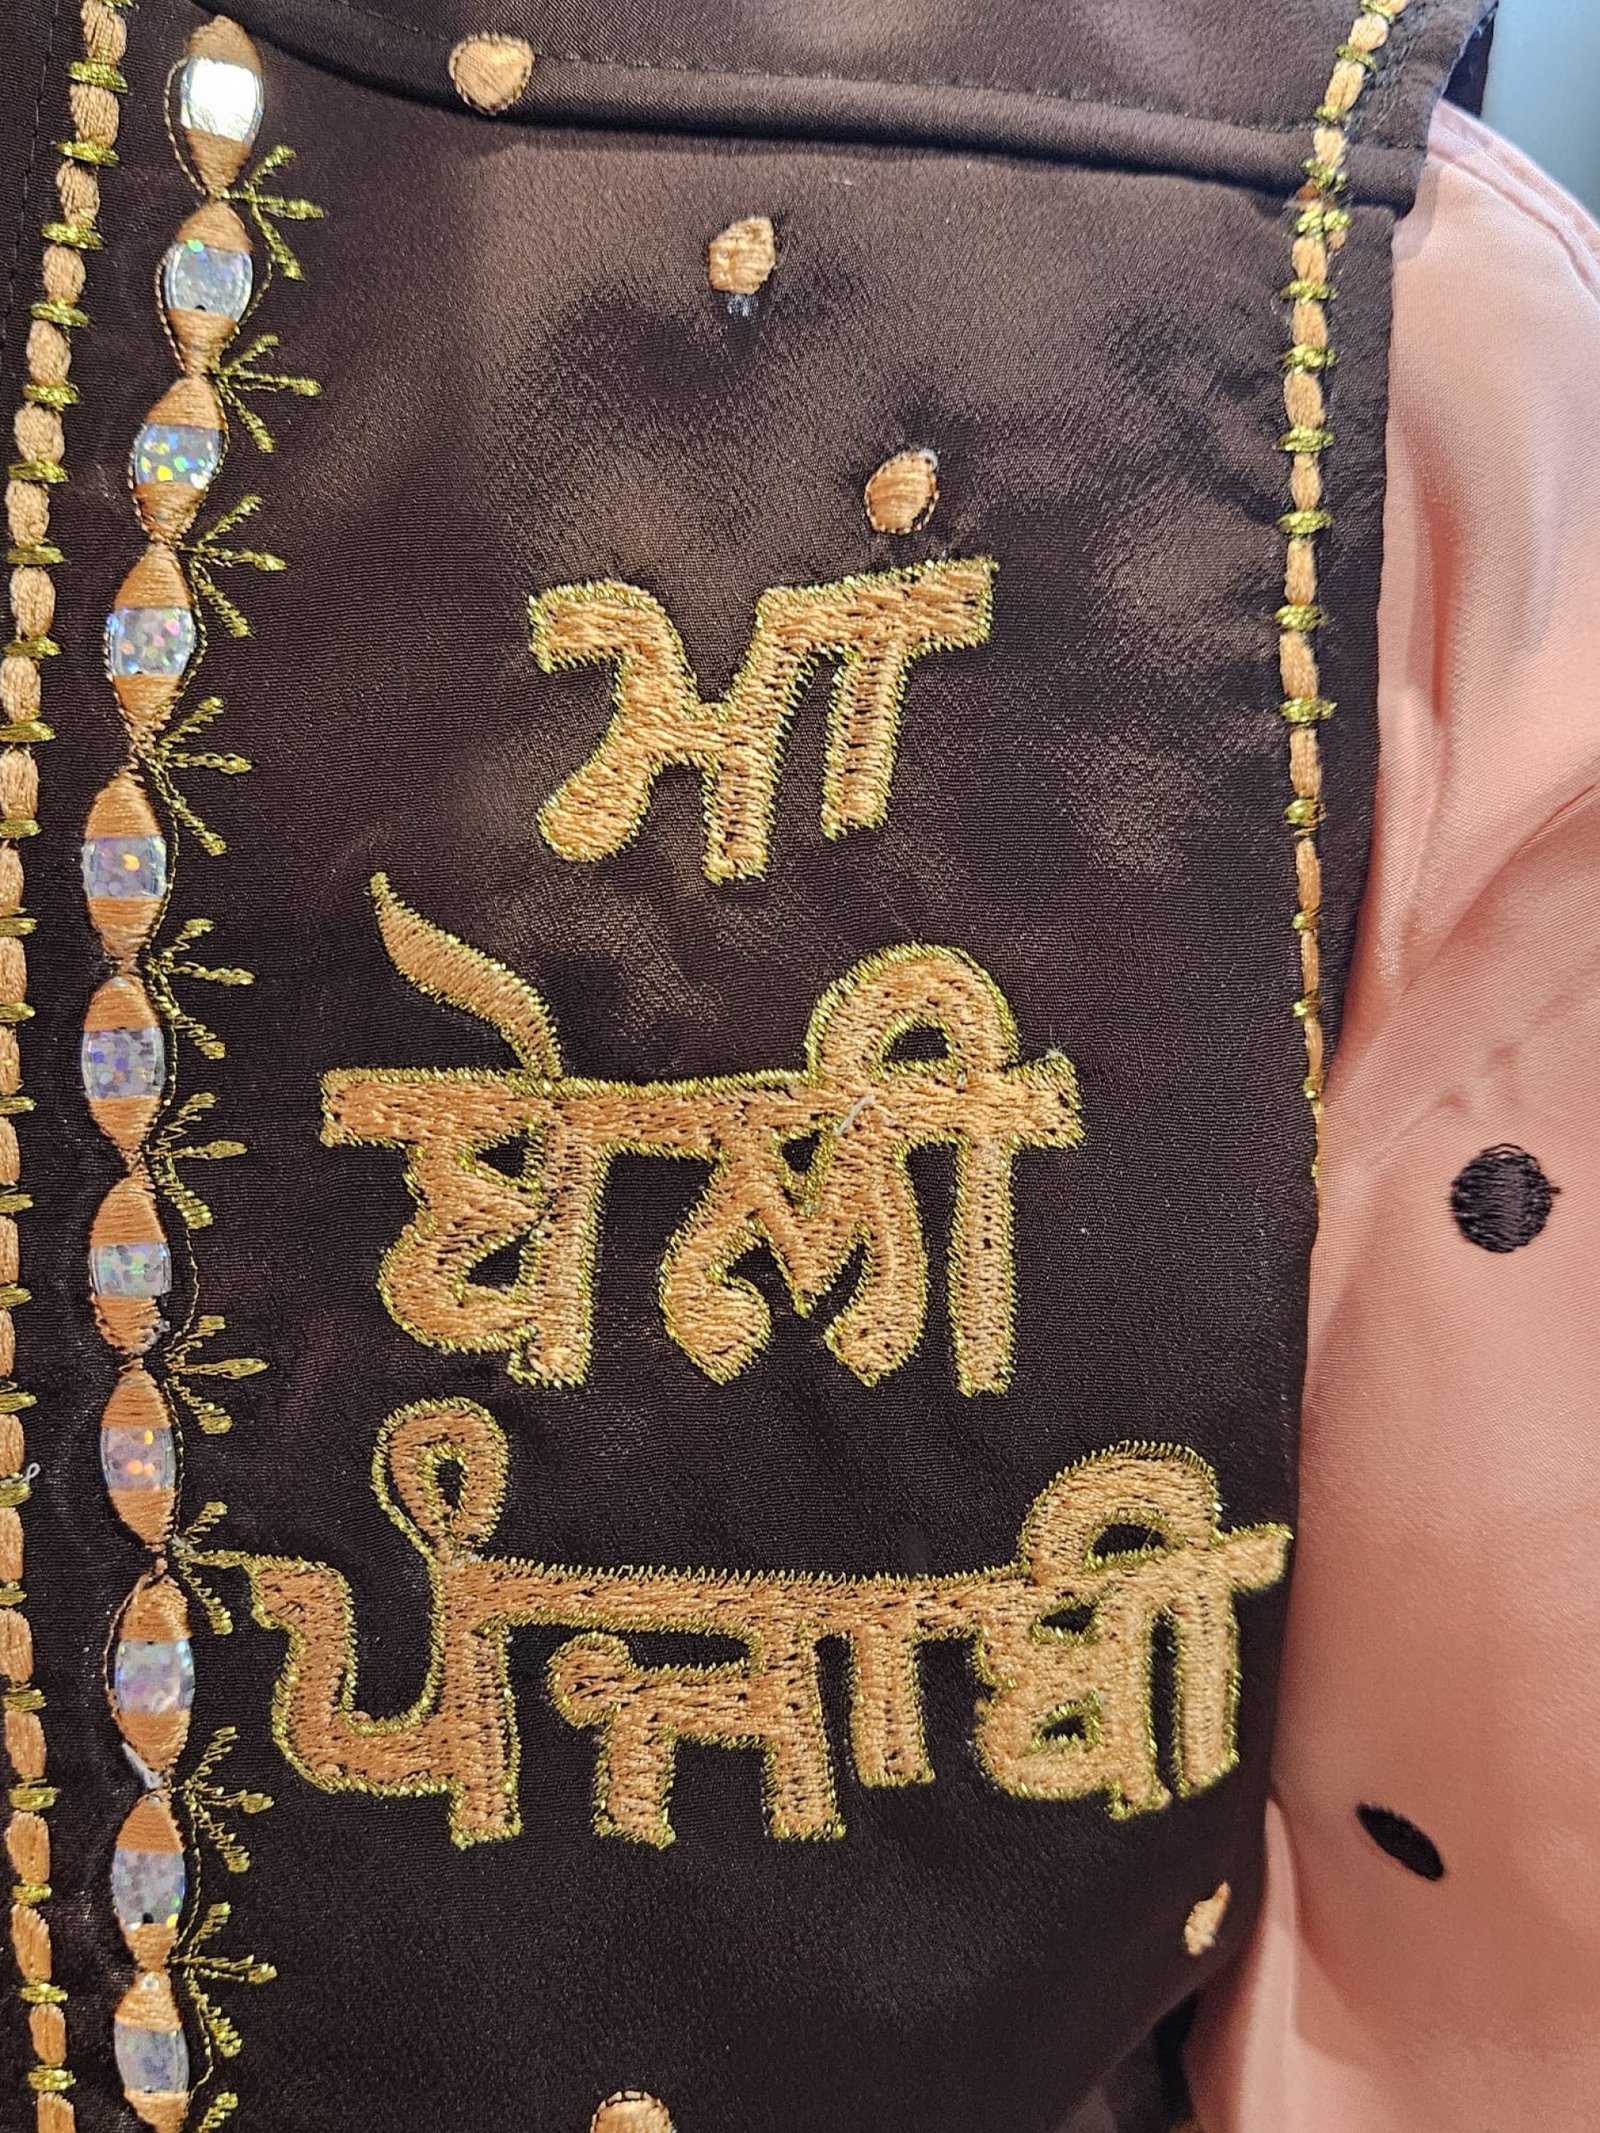 ਮਾ
ਬੇਲੀ
ਪੰਜਾਬੀ